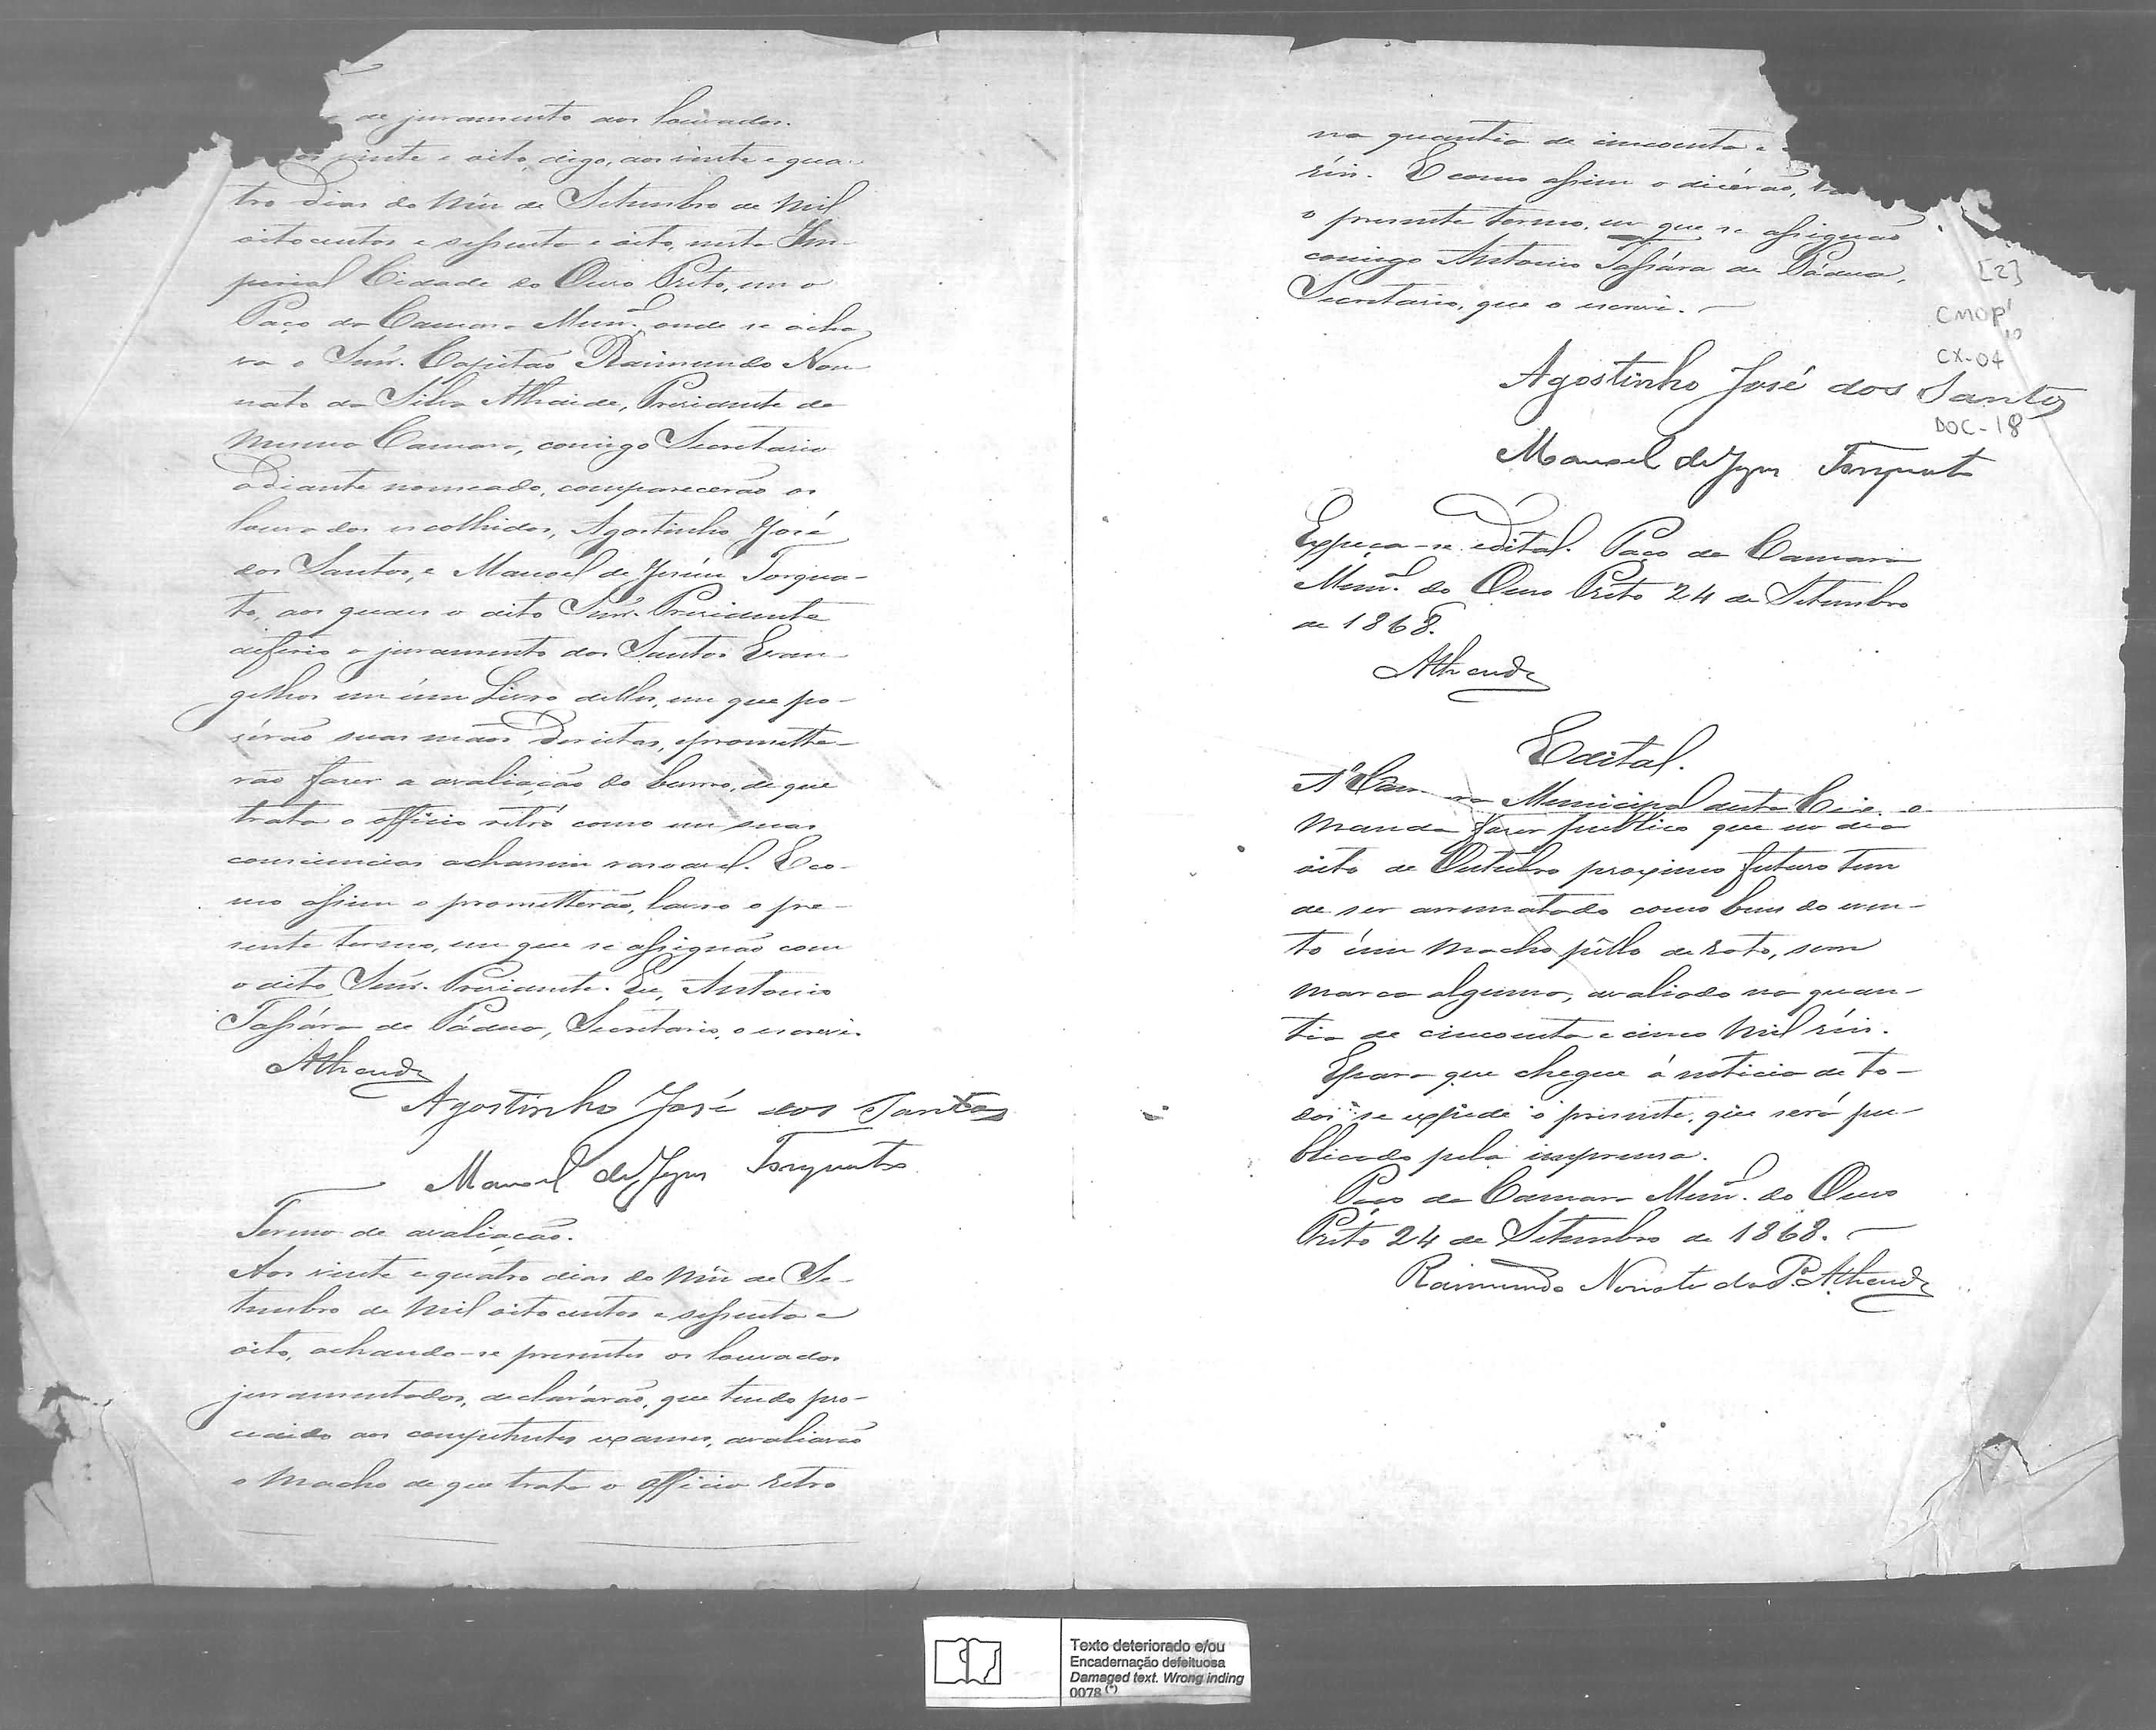 de juramento aos louvados.
vinte e oito, digo, aos vinte e qua-
tro dias do Mêz de Setembro de Mil
oitocentos e sessenta e oito, nesta Im-
perial Cidade do Ouro Preto, em o
Paço da Camara Munal. onde se acha
va o Snr. Capitão Raimundo Non-
nato da Silva Athaide, Presidente da
mesma Camara, comigo Secretario
adiante nomeado, comparecerão os
louvados escolhidos, Agostinho José
dos Santos, e Manoel de Jesús Torqua-
to, aos quaes o dito Snr. Presidente
deferio o juramento dos Santos Evan-
gelhos em úm Livro delles, em que po-
zérão suas mãos direitas, e prometté-
rão fazer a avaliação do burro, de que
trata o officio rétró como em suas
consciencias achassem rasoavel. E co-
mo assim o prometterão, lavro o pre-
sente termo, em que se assignão com
o dito Snr. Presidente. Eu, Antonio
Tassára de Pádua, Secretario, o escrevi.
Athayde
Agostinho José dos Santos
Manoel de Jesus Torquato
Termo de avaliação.
Aos vinte e quatro dias do Mêz de Se-
tembro de Mil oitocentos e sessenta e
oito, achando-se presentes os louvados
juramentados, declarárão, que tendo pro-
cedido aos competentes exames, avaliarão
o Macho de que trata o officio retro
na quantia de cincoenta e
réis. E como assim o dicérão,
o presente termo, em que se assignão
comigo Antonio Tassára de Pádua,
Secretario, que o escrevi.
[2]
CMOP
CX-04
DOC-18
Agostinho José dos Santos
Manoel de Jesus Torquato
Expeça-se edital. Paço da Camara
Munal. do Ouro Preto 24 de Setembro
de 1868.
Athayde
Edital.
A Camara Municipal desta Cide.
Manda fazer publico que no dia
oito de Outubro proximo futuro tem
de ser arrematado como bem do even-
to úm Macho pêllo de rato, sem
marca alguma, avaliado na quan-
tia de cincoenta e cinco Mil réis.
E para que chegue á noticia de to-
dos se expede o presente, que será pu-
blicado pela imprensa.
Paço da Camara Munal. do Ouro
Preto 24 de Setembro de 1868.
Raimundo Nonato da Sa. Athayde
Texto deteriorado e/ou
Encadernação defeituosa
Damaged text. Wrong inding
0078 (*)